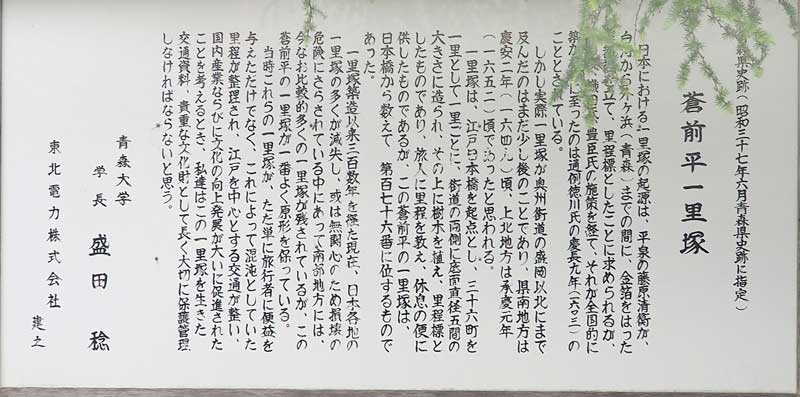 県史跡（昭和三十七年六月青森県史跡に指定）
蒼前平一里塚
日本における一里塚の起源は、平泉の藤原清衡が、
白河から外ヶ浜（青森）までの間に、金箔をはった
立て、里程標としたことに求められるが、
豊臣氏の施策を経て、それが全国的に
築か　に至ったのは通例徳川氏の慶長九年（一六〇三）の
こととされている。
しかし実際一里塚が奥州街道の盛岡以北にまで
及んだのはまだ少し後のことであり、県南地方は
慶安二年（一六四九）頃、上北地方は承慶元年
（一六五二）頃であったと思われる。
一里塚は、江戸日本橋を起点とし、三十六町を
一里として一里ごとに、街道の両側に底面直径五間の
大きさに造られ、その上に樹木を植え、里程標と
したものであり、旅人に里程を教え、休息の便に
供したものであるが、この蒼前平の一里塚は、
日本橋から数えて、第百七十六番に位するもので
あった。
一里塚築造以来三百数年を経た現在、日本各地の
一里塚の多くが滅失し、或は無関心のため損壊の
危険にさらされている中にあって南部地方には、
今なお比較的多くの一里塚が残されているが、この
蒼前平の一里塚が一番よく原形を保っている。
当時これらの一里塚が、たた単に旅行者に便益を
与えただけでなく、これによって混沌としていた
里程が整理され、江戸を中心とする交通が整い、
国内産業ならびに文化の向上発展が大いに促進された
ことを考えるとき、私達はこの一里塚を生きた
交通資料、貴重な文化財として長く大切に保護管理
しなければならないと思う。
青森大学
学長　盛田　稔
東北電力株式会社　建之